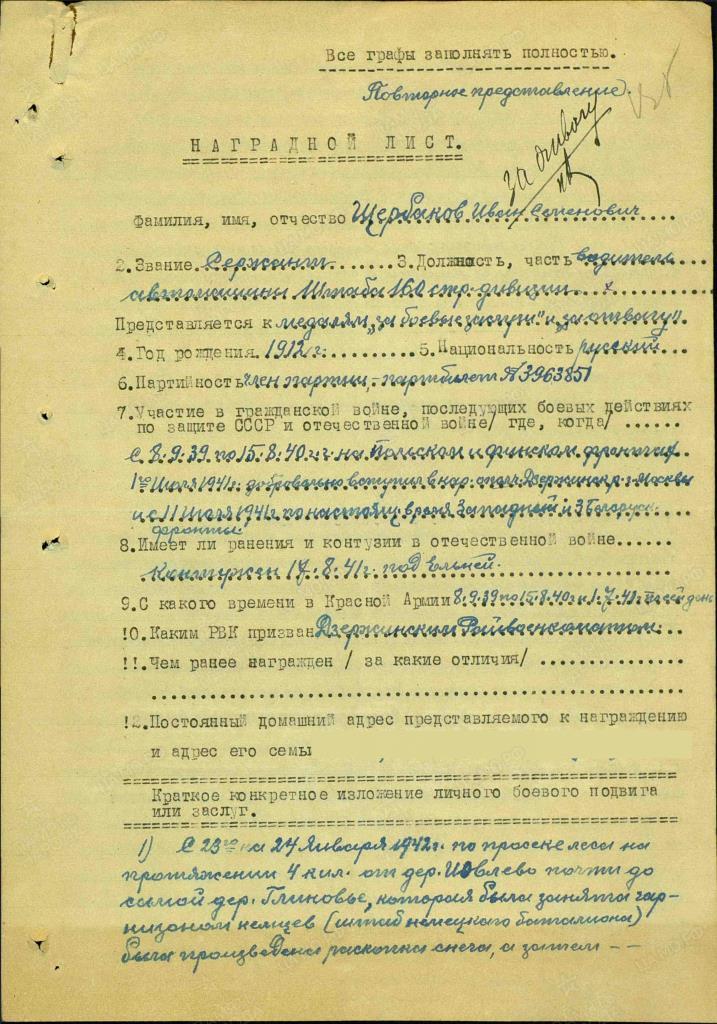 Все графы заполнять полностью.
Повторное представление.
За отвагу
НАГРАДНОЙ ЛИСТ.
Фамилия, имя, отчество Щербаков Иван Семенович
2.Звание Сержант 3.Должность, часть водитель
автомашины Штаба 160 стр. дивизии
Представляется к медалям „за боевые заслуги" и „за отвагу"
4.Год рождения 1912 г. 5.Национальность русский
6.Партийность член партии, - партбилет № 3963851
7.Участие в гражданской войне, последующих боевых действиях
по защите СССР и отечественной войне/ где, когда/
С 8.9.39 по 15.8.40 г. на Польском и финском фронтах
1го Июля 1941г. добровольно вступил в нар. ополч. Дзержинск. р. г. Москвы
и с 11 Июля 1941г. по настоящ. время Западный и 3 Белорус.
фронты.
8.Имеет ли ранения и контузии в отечественной войне
Контужен 17.8.41г. под Ельней.
9.С какого времени в Красной Армии 8.9.39 по 15.8.40 и 1.7.41 по сей день
!0.Каким РВК призван Дзержинским Райвоенкоматом
!!.Чем ранее награжден / за какие отличия/
!2.Постоянный домашний адрес представляемого к награждению
и адрес его семы
Краткое конкретное изложение личного боевого подвига
или заслуг.
1) С 23го на 24 Января 1942г. по просеке леса на
протяжении 4 кил. от дер. Иовлево почти до
самой дер. Глиновье, которая была занята гар-
низоном немцев (штаб немецкого баталиона)
была произведена раскопка снега, а затем --